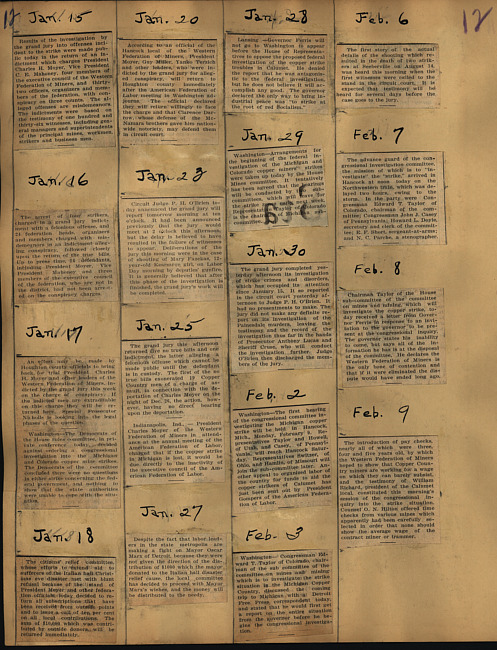 12
Jan. 15
Results of the investigation by
the grand jury into offenses inci-
dent to the strike were made pub-
lic today in the return of an in-
dictment which charges President
Charles H. Moyer, Vice President
C. E. Mahoney, four members of
the executive council of the Western
Federation of Miners, and thirty-
two others, organizers and mem-
bers of the federation, with con-
spiracy on three counts. The al-
leged offenses are misdemeanors.
The indictments were founded on
the testimony of one hundred and
thirty-six witnesses, including gen-
eral managers and superintendents
of the principal mines, workmen,
strikers and business men.
Jan. 16
The arrest of
in a grand jury indict-
ment with a felonious offense, and
federation heads, organizers
and members charged with mis-
demeanors in an indictment alleg-
ing conspiracy, followed closely
upon the return of the true bills.
Up to press time
including President Moyer, Vice President
Mahoney and three
members of the executive council
of the federation, who are not in
the district, had not been arrest-
ed on the conspiracy charges.
Jan. 17
An effort may be made by
Houghton county officials to bring
back President Charles
H. Moyer and other leaders of the
Western Federation of Miners, in-
dicted by the grand jury this week
on the charge of conspiracy, if
the indicted men are extraditable
on this charge they will be re-
turned here. Special Prosecutor
Nichols is looking into the legal
phases of the question.
Washington—The Democrats of
the House mines committee, in pri-
vate conference today, decided
against ordering a congressional
investigation into the Michigan
and Colorado copper mine strikes.
The Democrats of the committee
concluded there were no questions
in strike concerning either the fed-
eral government and nothing to
indicate the state authorities
were unable to cope with the situa-
tion.
Jan. 18
The citizens' relief committee,
whose efforts to extend aid to
sufferers of the Italian hall Christ-
mas eve disaster met with blunt
refusal because of the stand of
President Moyer and other federa-
tion officials, today decided to re-
turn all subscriptions that have
been received from outside points
and to issue a call of ten per cent
on all local contributions. The
sum of $10,000 which was contri-
buted by outside donors will be
returned immediately.
Jan. 20
According to an official of the
Hancock local of the Western
Federation of Miners, President
Moyer, Guy Miller, Yanko Terzich
and other leaders, who were in-
dicted by the grand jury for alleg-
ed conspiracy, will return to
Houghton county immediately
after the American Federation of
Labor meeting in Washington ad-
journs. The official declared
they will return willingly to face
the charge and that Clarence Dar-
row, whose defense of the Mc-
Namara brothers gave him nation-
wide notoriety, may defend them
in circuit court.
Jan. 23
Circuit Judge P. H. O'Brien to-
day excused the grand jury until
report tomorrow morning at ten
o'clock. It had been announced
previously that the jury would
meet at 2 o'clock this afternoon,
but the delay is believed to have
resulted in the failure of witnesses
to appear. Deliberations of the
jury this morning were in the case
of shooting of Mary Fazekas, 14
year-old daughter, on Labor
Day morning by deputies' gunfire.
It is generally believed that after
this phase of the investigation is
finished, the grand jury's work will
be completed.
Jan. 25
The grand jury this afternoon
returned five no true bills and one
indictment, the latter alleging a
statutory offense which cannot be
made public until the defendant
is in custody. The first of the no
true bills exonerated a Copper
Country man of a charge of as-
sault, in connection with the de-
portation of Charles Moyer on the
night of Dec. 26, the action, how-
ever, having no direct bearing
upon the deportation.
Indianapolis, Ind. — President
Charles H. Moyer, of the Western
Federation of Miners in attend-
ance at the annual meeting of the
United Mine Workers today
charged that if the copper strike
in Michigan is lost, it would be
due directly to the inactivity of
the executive council of the Am-
erican Federation of Labor.
Jan. 27
Despite the fact that labor lead-
ers in the state metropolis are
making a fight on Mayor Oscar
Marx of Detroit, because they were
not given the direction of the dis-
tribution of $4000 which the mayor
raised for the Italian hall disaster
relief cause, the local committee
has decided to proceed with Mayor
Marx's wishes, and the money will
be distributed to the needy.
Jan. 28
Lansing—Governor Ferris will
not go to Washington to appear
before the House of Representa-
tives to oppose the proposed federal
investigation of the copper strike
troubles in Calumet. He denied
the report that he was antagonis-
tic to the federal investigation,
but he does not believe it will ac-
complish any good. The governor
declared the only way to bring in-
dustrial peace was "to strike at
the root of red Socialism."
Jan. 29
Washington—Arrangements for
the beginning of the federal in-
vestigation of the Michigan and
Colorado copper miners' strikes
were taken up today by the House
Mines committee. It tentatively
has been agreed that the inquiry
will be conducted by
Jan. 30
The grand jury completed yes-
terday afternoon its investigation
of strike crimes and disorders,
which has occupied its attention
since January 15. It so reported
in the circuit court yesterday aft-
ernoon to Judge P. H. O'Brien. It
had no presentments to make. The
jury did not make any definite re-
port on its investigation of the
Painesdale murders, leaving the
testimony and the record of the
investigation thus far in the hands
of Prosecutor Anthony Lucas and
Sheriff Cruse, who will conduct
the investigation further. Judge
O'Brien then discharged the mem-
bers of the jury.
Feb. 2
Washington—The first hearing
of the congressional committee in-
vestigating the Michigan copper
strike will be held in Hancock,
Mich., Monday, February 9. Rep-
resentatives Taylor and Howell,
of Utah, and Casey, of Pennsyl-
vania, will reach Hancock Satur-
day. Representatives Switzer, of
Ohio, and Hamlin, of Missouri will
join the sub-committee later. An-
other appeal to organized labor of
the country for funds to aid the
copper strikers of Calumet has
just been sent out by President
Gompers of the American Federa-
tion of Labor.
Feb. 3
Washington — Congressman Ed-
ward T. Taylor of Colorado, chair-
man of the sub committee of the
committee on mines and mining
which is to investigate the strike
situation in the Michigan Copper
Country, discussed the coming
trip to Michigan with a Detroit
Free Press correspondent today,
and stated that he would first get
a report on the entire situation
from the governor before he be-
gins the congressional investiga-
tion.
Feb. 6
The first story of the actual
details of the shooting which re-
sulted in the death of two strik-
ers at Seeberville on August 14
was heard this morning when the
first witnesses were called to the
stand in the circuit court. It is
expected that testimony will be
heard for several days before the
case goes to the jury.
Feb. 7
The advance guard of the con-
gressional investigating committee,
the mission of which is to "in-
vestigate" the "strike," arrived in
Hancock at noon today on the
Northwestern Ohio, which was de-
layed two hours, owing to the
storm. In the party were Con-
gressman Edward T. Taylor of
Colorado, chairman of the com-
mittee; Congressman John J. Casey
of Pennsylvania; Howard L. Davis,
secretary and clerk of the commit-
tee; R. F. Short, sergeant-at-arms;
and N. C. Parche, a stenographer.
Feb. 8
Chairman Taylor of the House
sub-committee of the committee
on mines and mining, which will
investigate the copper strike, to-
day received a letter from Gover-
nor Ferris in response to an invi-
tation to the governor to be pre-
sent at the congressional inquiry.
The governor states his inability
to come, but says all of the in-
formation he has is at the disposal
of the committee. He declares the
Western Federation of Miners is
the only bone of contention and
that if it were eliminated the dis-
pute would have ended long ago.
Feb. 9
The introduction of pay checks,
nearly all of which were three,
four and five years old, by which
the Western Federation of Miners
hoped to show that Copper Coun-
try miners are working for a wage
on which they can barely subsist,
and the testimony of William
Rickard, president of the Calumet
local, constituted this morning's
session of the congressional in-
quiry into the strike situation.
Counsel O. N. Hilton offered time
checks from various mines which
apparently had been carefully se-
lected in order that none should
show the average wage of the
contract miner or trammer.
12